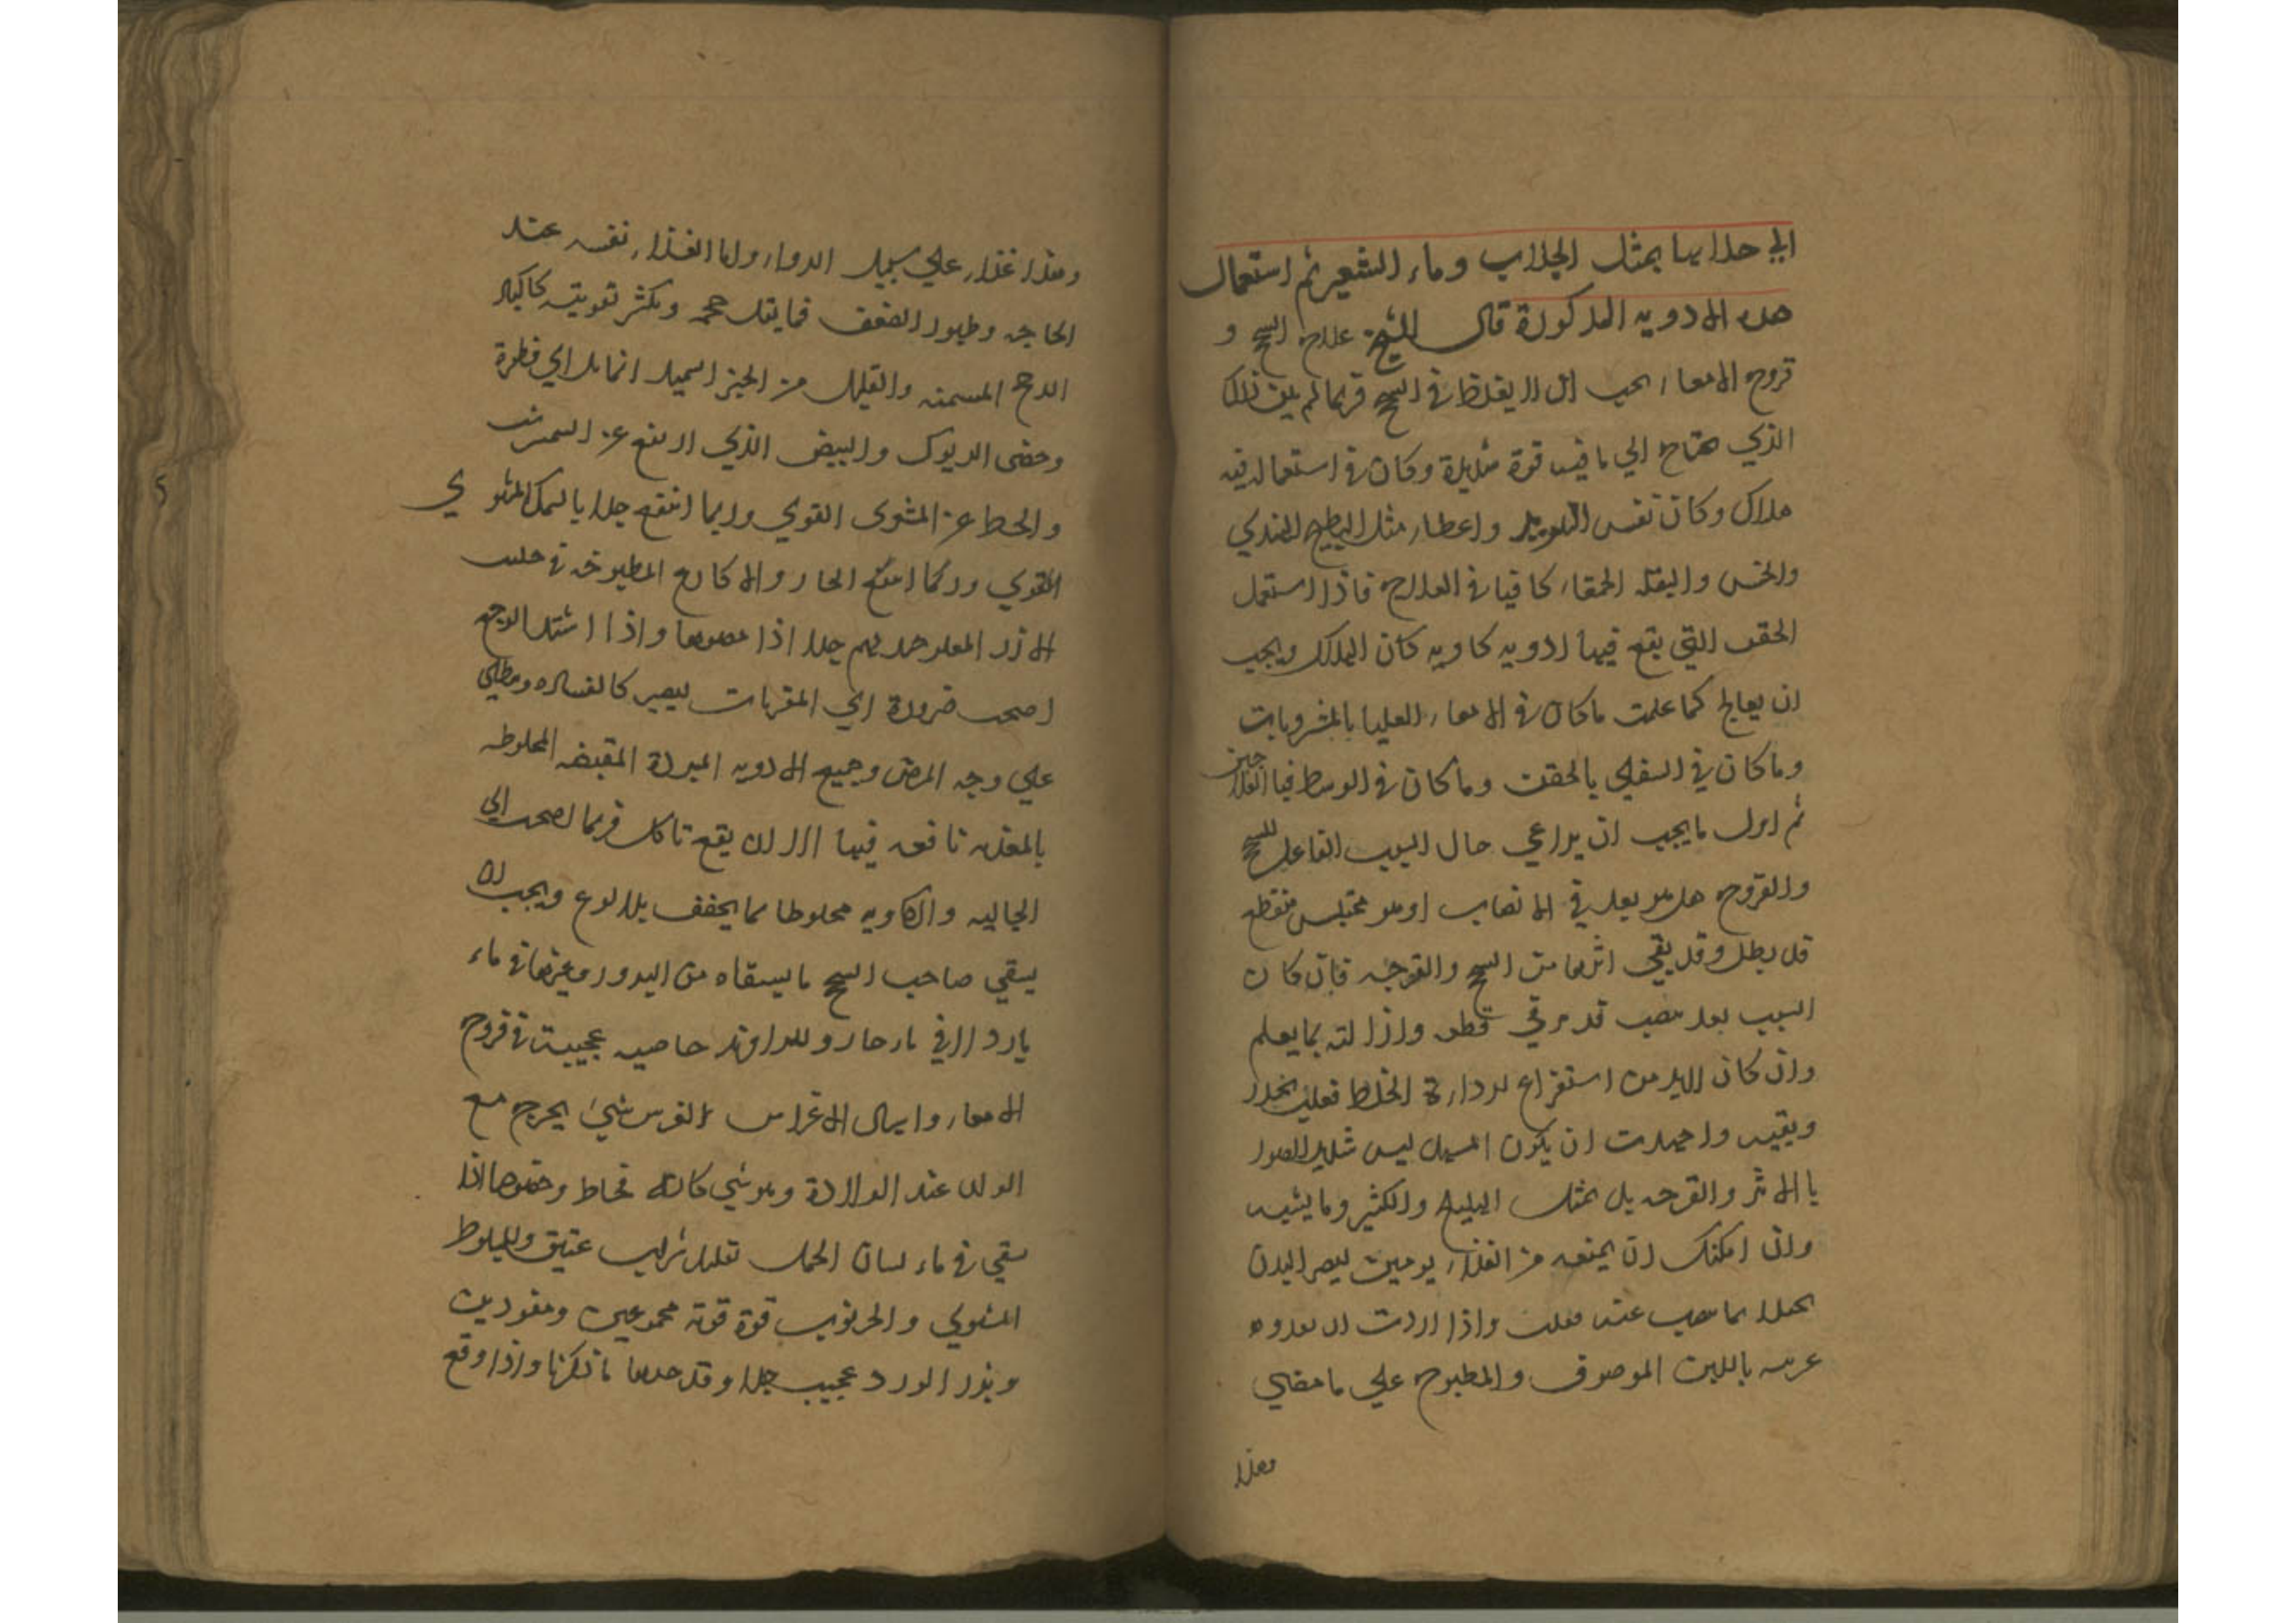 الي حلاايها بمثل الجلاب وماء الشعير ثم استعمال
هذه الادويه المذكورة قال الشيخ علاج السحج و
قروح الامعاء يجب ان لا يغلظ في السحج فربما لم يكن ذلك
الذي يحتاج الي ما فيه قوة شديدة وكان في استعماله فيه
هلاك وكان نفس التبريد واعطاء مثل البطيخ الهندي
والخس والبقله الحمقاء كافيا في العلاج فاذا استعمل
الحقن التي يقع فيها ادويه كاويه كان الهلاك ويجب
ان يعالج كما علمت ماكان في الامعاء العليا بالمشروبات
وماكان في السفلي بالحقن وماكان في الوسط فبالعلاجين
ثم اول مايجب ان يراعي حال السبب الفاعل للسحج
والقروح هل هو بعد في الانصاب او هو محتبس منقطع
قد بطل وقد بقي اثرها من السحج والقرحه فان كان
السبب بعد منصب قد مر في قطعه وازالته بما يعلم
وان كان لابد من استفراغ لرداءة الخلط فعلت بحذر
وبقيه واجهدت ان يكون المسهل ليس شديد الضرر
بالاثر والقرحه بل بمثل الهليلج والكثير وما يشبه
وان امكنك ان يمنعه من الغذاء يومين ليصير البدن
بما ينصب عنه فعلت واذا اردت ان تغذوه
باللبن الموصوف والمطبوخ علي مامضي
وهذا
وهذا غذاء علي سبيل الدواء واما الغذاء نفسه عند
الحاجه وظهور الضعف فمايقل حجمه ويكثر تقويته كاكباد
الدجج المسمنه والقليل من الخبز السميد
وخصي الديوك والبيض الذي ارتفع عن
والحط عن المشوي القوي وربما انتفع جدا بالسمك المشوي
القوي وربما انتفع الحار والاكارع المطبوخه في
الارز المغلو جدا اذا واذا اشتد الوجع
احتجت ضرورة الي المغريات ليصير كالغساله ويطلي
علي وجه المرض وجميع الادويه المبردة المقبضه المخلوطه
بالمغريه نافعه فيها الا ان يقع تاكل فربما احتجت الي
الجاليه والكاويه مخلوطا بما يخفف بلا لذع ويجب ان
يسقي صاحب السحج مايسقاه من البذور وغيرها في ماء
بارد لا في ماء حار وللراوند خاصيه عجيبه في قروح
الامعاء الفرس شيء يخرج مع
الولد عند الولادة وهو شي كانه مخاط وخصوصا اذا
سقي في ماء لسان الحمل بقليل شراب عتيق وللبلوط
المشوي والخرنوب قوة قوية مجموعين ومفردين
وبذر الورد عجيب جدا وقد ماذكرنا واذا وقع